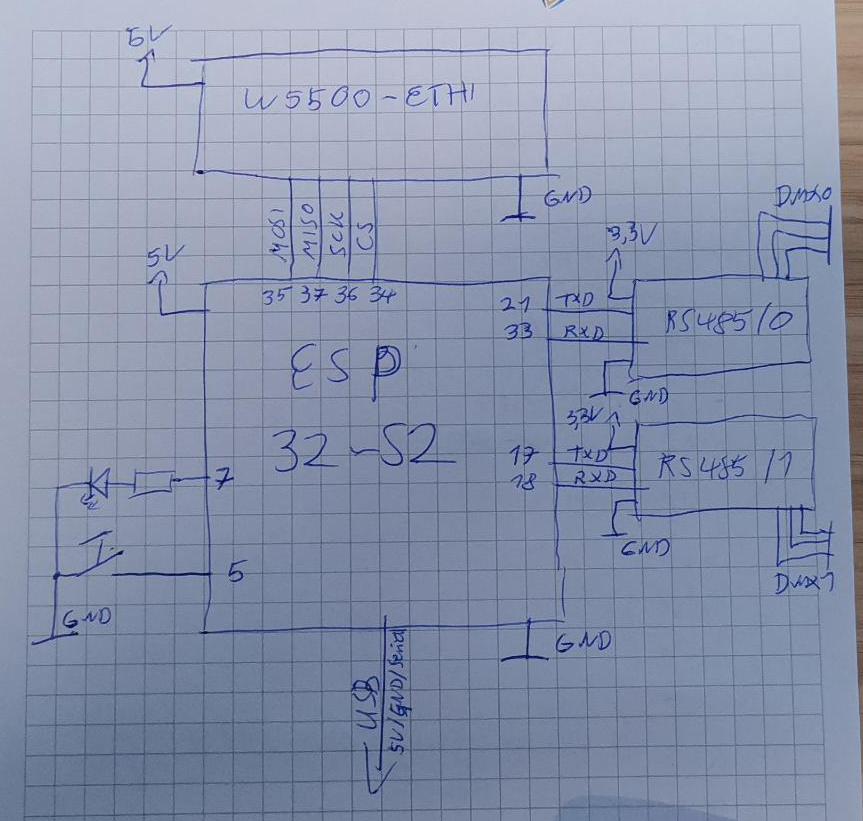 5V
W5500-ETH
GND
DMX0
MOSI
MISO
SCK
CS
5V
3,3V
35 37 36 34
21 TXD
33 RXD
RS485/0
GND
ESP
32-S2
3,3V
17 TXD
18 RXD
RS485/1
7
GND
5
DMX1
GND
GND
USB
5V/GND/Serial